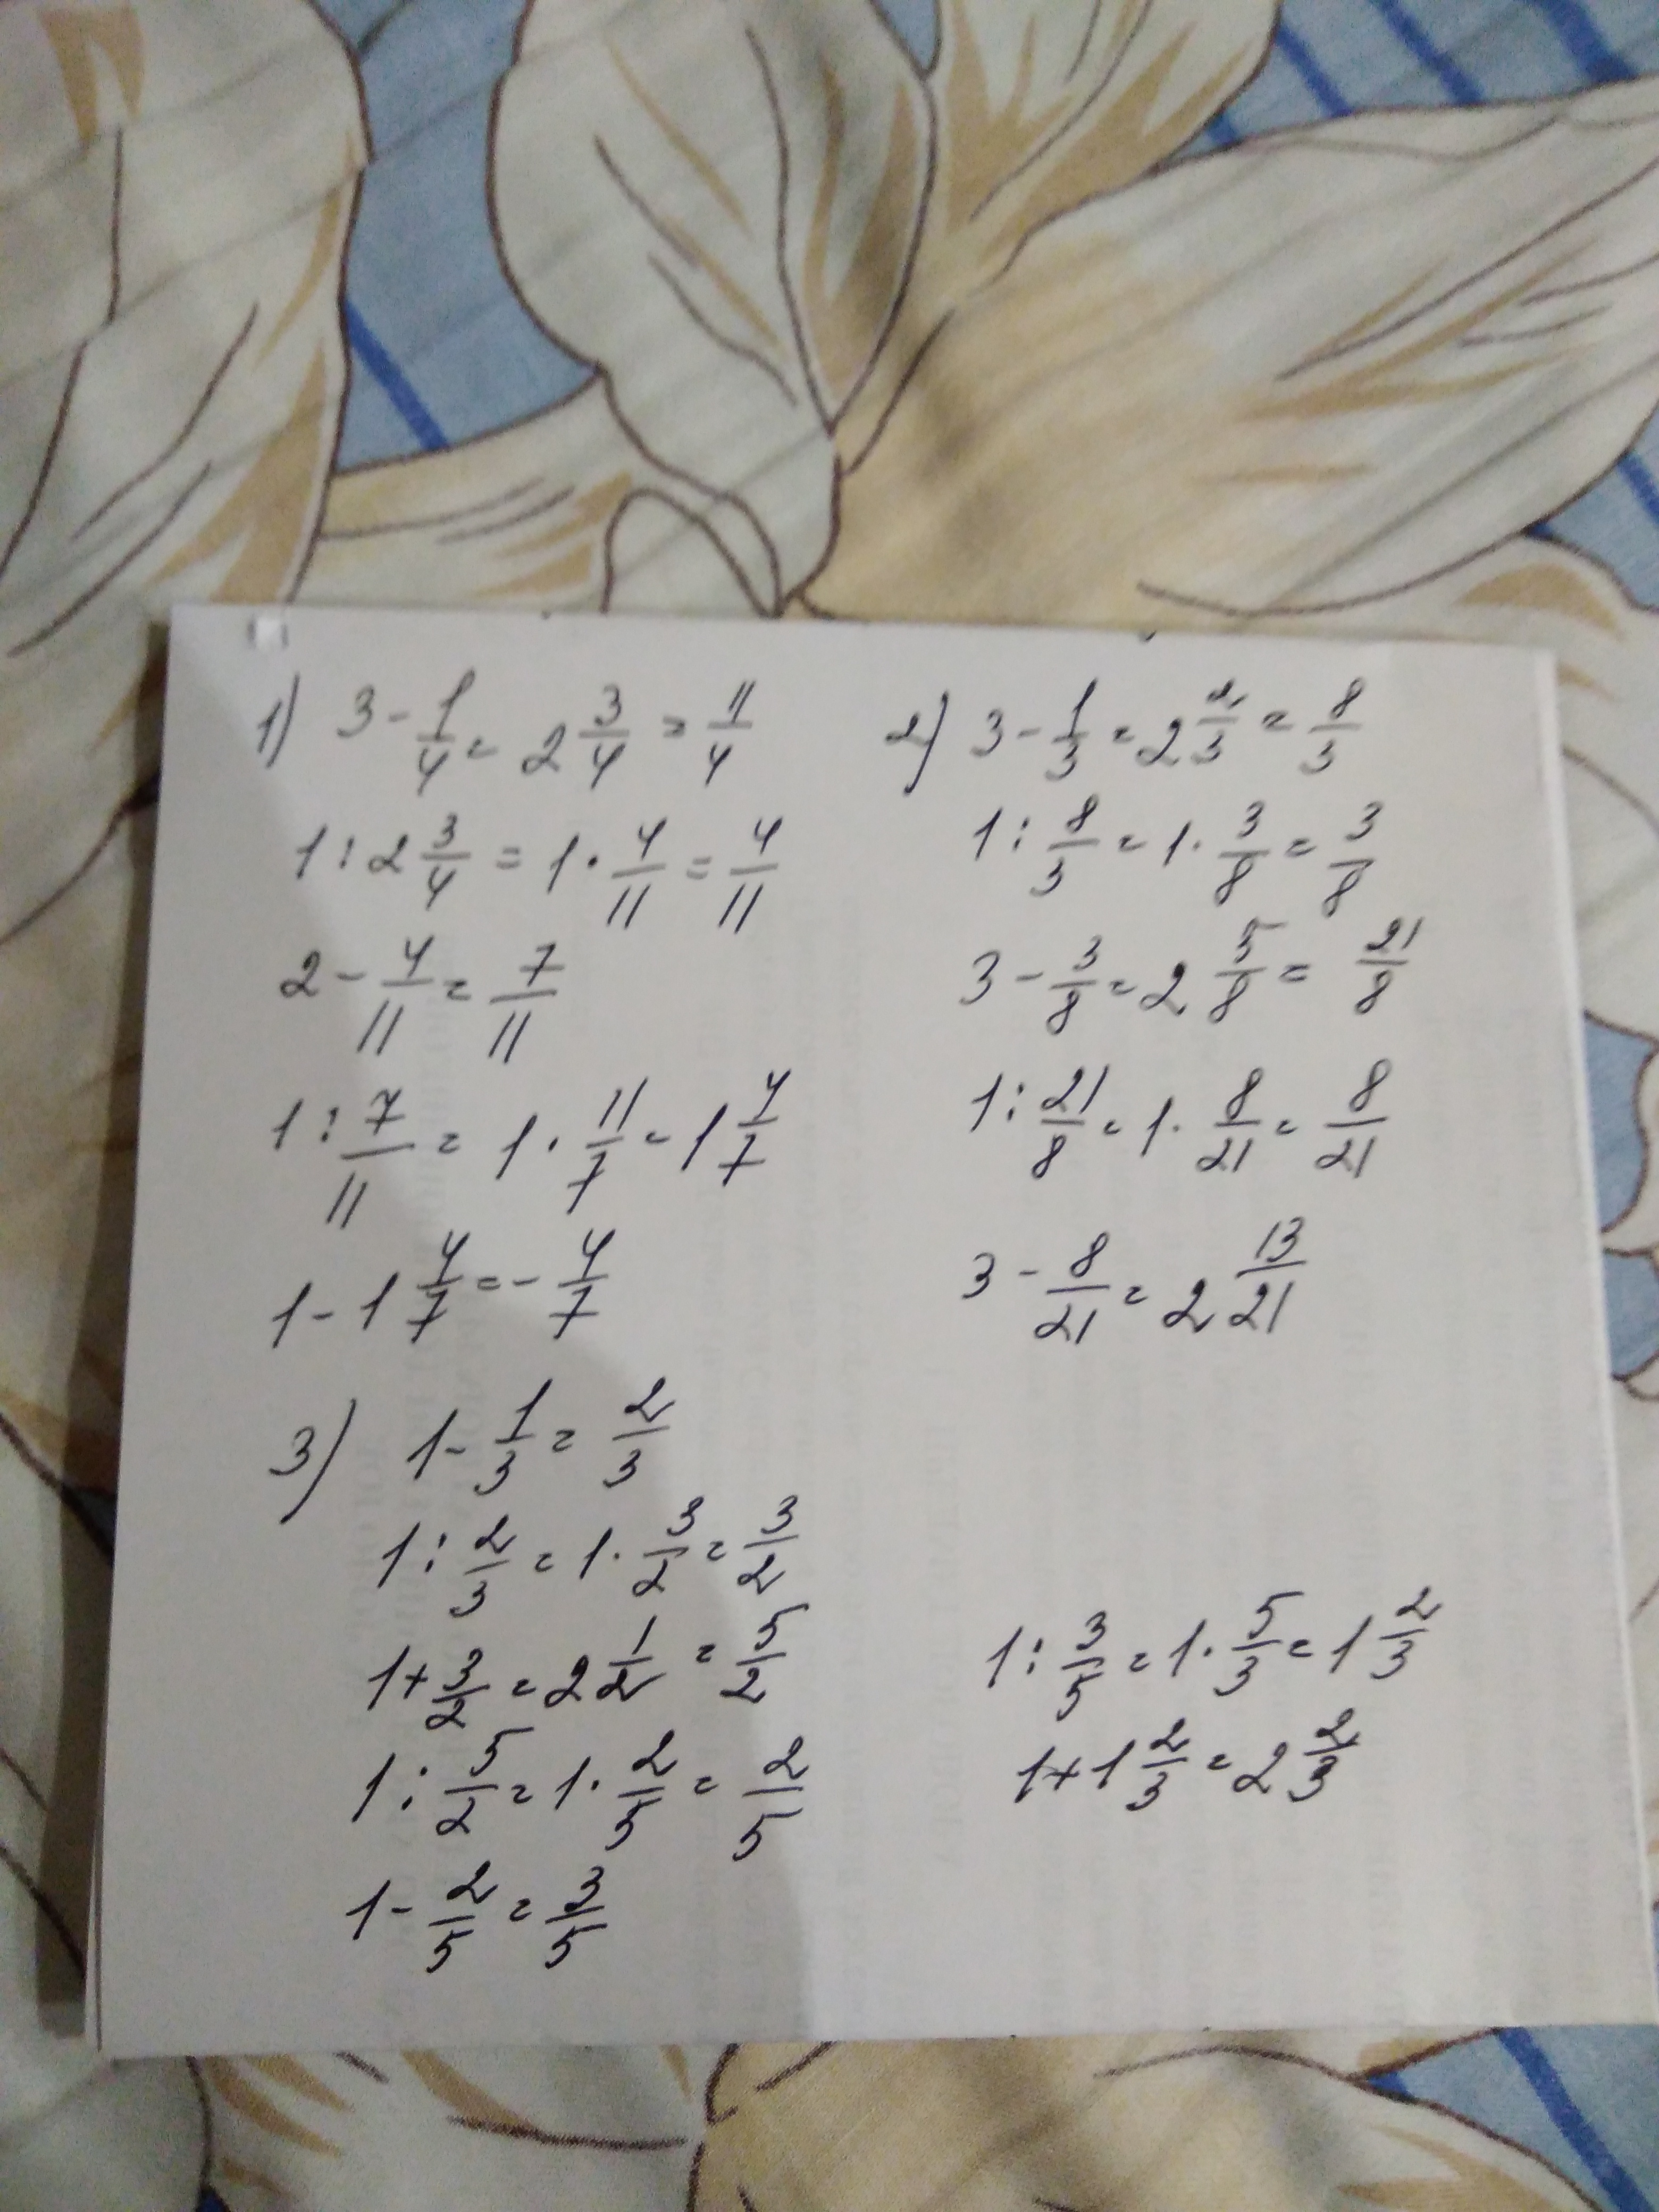 1) 3 - 1/4 = 2 3/4 = 11/4
1 : 2 3/4 = 1 · 4/11 = 4/11
2 - 4/11 = 7/11
1 : 7/11 = 1 · 11/7 = 1 4/7
1 - 1 4/7 = - 4/7
2) 3 - 1/3 = 2 2/3 = 8/3
1 : 8/3 = 1 · 3/8 = 3/8
3 - 3/8 = 2 5/8 = 21/8
1 : 21/8 = 1 · 8/21 = 8/21
3 - 8/21 = 2 13/21
3) 1 - 1/3 = 2/3
1 : 2/3 = 1 · 3/2 = 3/2
1 + 3/2 = 2 1/2 = 5/2
1 : 5/2 = 1 · 2/5 = 2/5
1 - 2/5 = 3/5
1 : 3/5 = 1 · 5/3 = 1 2/3
1 + 1 2/3 = 2 2/3